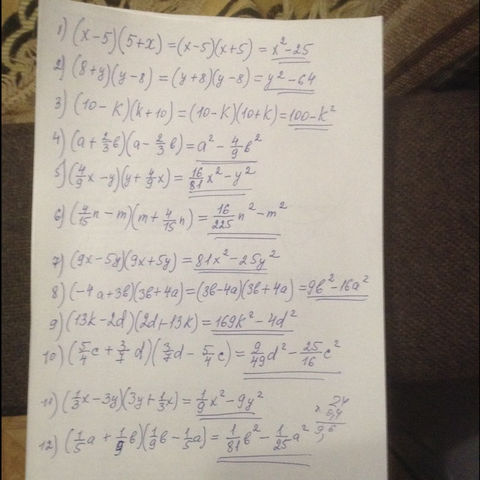 1) (x-5)(5+x)=(x-5)(x+5)=x²-25
2) (8+y)(y-8)=(y+8)(y-8)=y²-64
3) (10-k)(k+10)=(10-k)(10+k)=100-k²
4) (a+2/3b)(a-2/3b)=a²-4/9b²
5) (4/9x-y)(y+4/9x)=16/81x²-y²
6) (4/15n-m)(m+4/15n)=16/225n²-m²
7) (9x-5y)(9x+5y)=81x²-25y²
8) (-4a+3b)(3b+4a)=(3b-4a)(3b+4a)=9b²-16a²
9) (13k-2d)(2d+13k)=169k²-4d²
10) (5/4c+3/7d)(3/7d-5/4c)=9/49d²-25/16c²
11) (1/3x-3y)(3y+1/3x)=1/9x²-9y²
12) (1/5a+1/9b)(1/9b-1/5a)=1/81b²-1/25a²